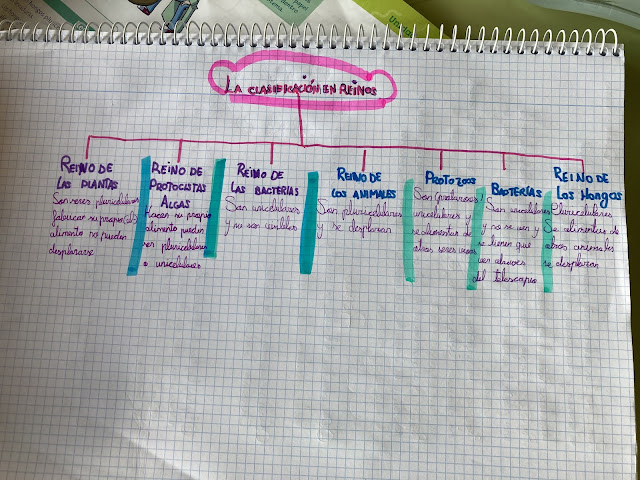 LA CLASIFICACIÓN EN REINOS
REINO DE
LAS PLANTAS
Son seres pluricelulares
fabrican su propio
alimento no pueden
desplazarse
REINO DE
PROTOCISTAS
ALGAS
Hacen su propio
alimento pueden
ser pluricelulares
o unicelulares
REINO DE
LAS BACTERIAS
Son unicelulares
y no son
REINO DE
LOS ANIMALES
Son pluricelulares
y se desplazan
PROTOZOOS
Son
unicelulares y
se alimentan de
otros seres vivos
BACTERIAS
Son unicelulares
y no se ven y
se tienen que
ver
del telescopio
REINO DE
LOS HONGOS
Pluricelulares
Se alimentan de
otros animales
se desplazan